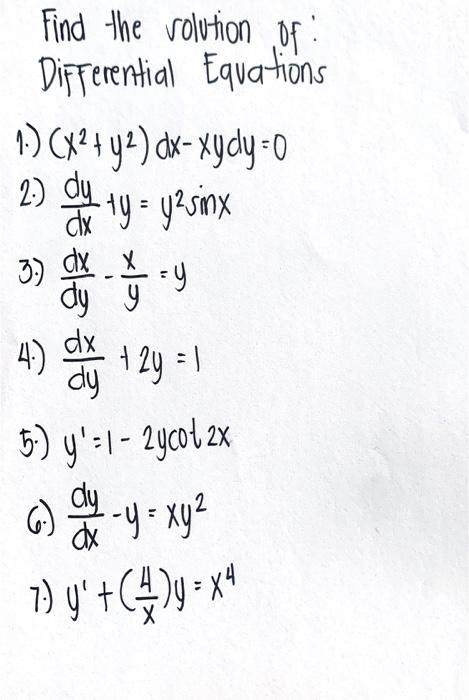 Find the solution of:
Differential Equations
1.) (x²+y²)dx-xydy=0
2.) dy/dx +y = y²sinx
3.) dx/dy - x/y = y
4.) dx/dy + 2y = 1
5.) y' = 1 - 2ycot2x
6.) dy/dx - y = xy²
7.) y' + (4/x)y = x⁴